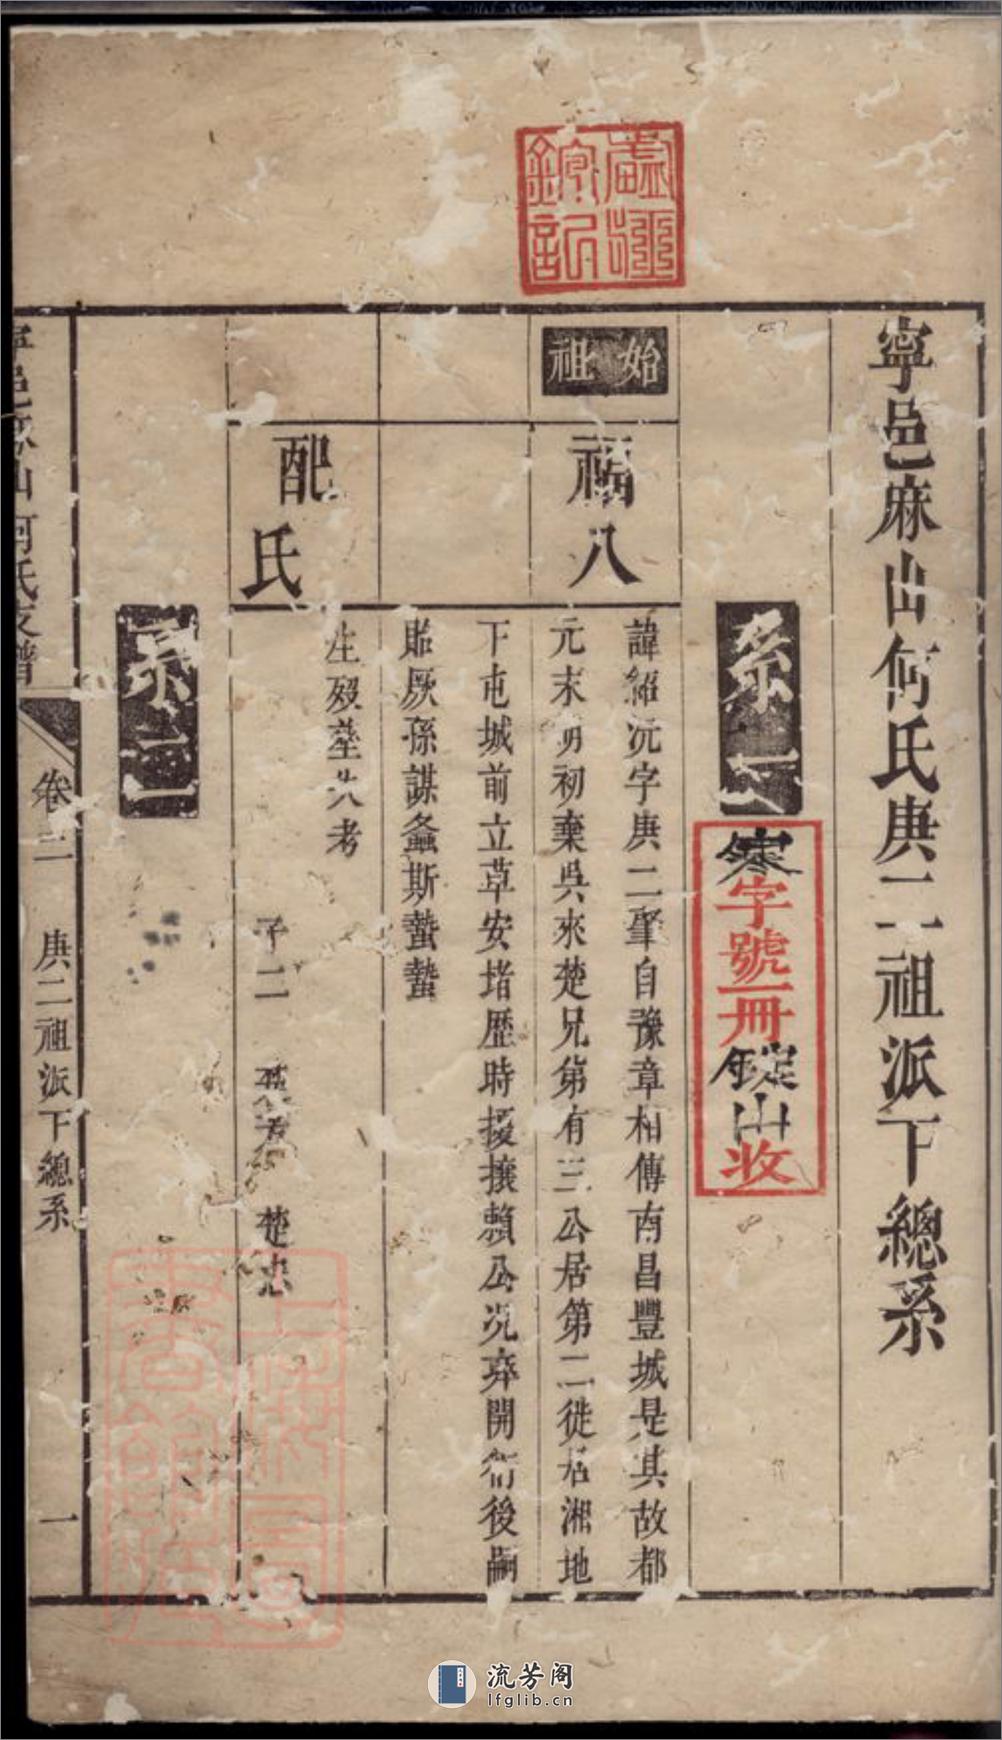 寧邑麻山何氏庚二祖派下總系
系一
寒字號一冊錠山收
始祖
福八
諱紹沅字庚二肇自豫章相傳南昌豐城是其故都
元末明初棄吳來楚兄第有三公居第二徙居湘地
下屯城前立草安堵歷時擾攘賴公況弈開衍後嗣
貽厥孫謀螽斯蟄蟄
配氏
生殁塋失考
子二 楚忠
系二
寧邑麻山何氏支譜
卷二
庚二祖派下總系
一
上海圖書館藏
流芳阁
lfglib.cn